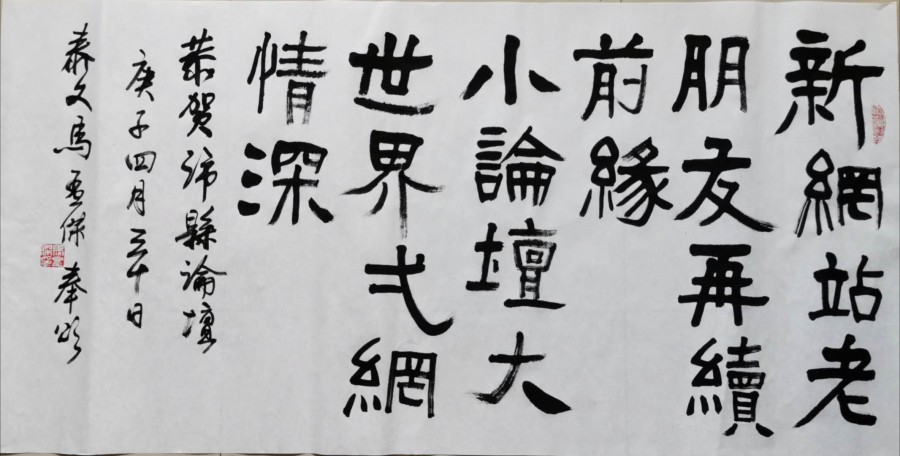 新網站老
朋友再續
前緣
小論壇大
世界弌網
情深
恭賀沛縣論壇
庚子四月三十日
馬孟傑奉頌